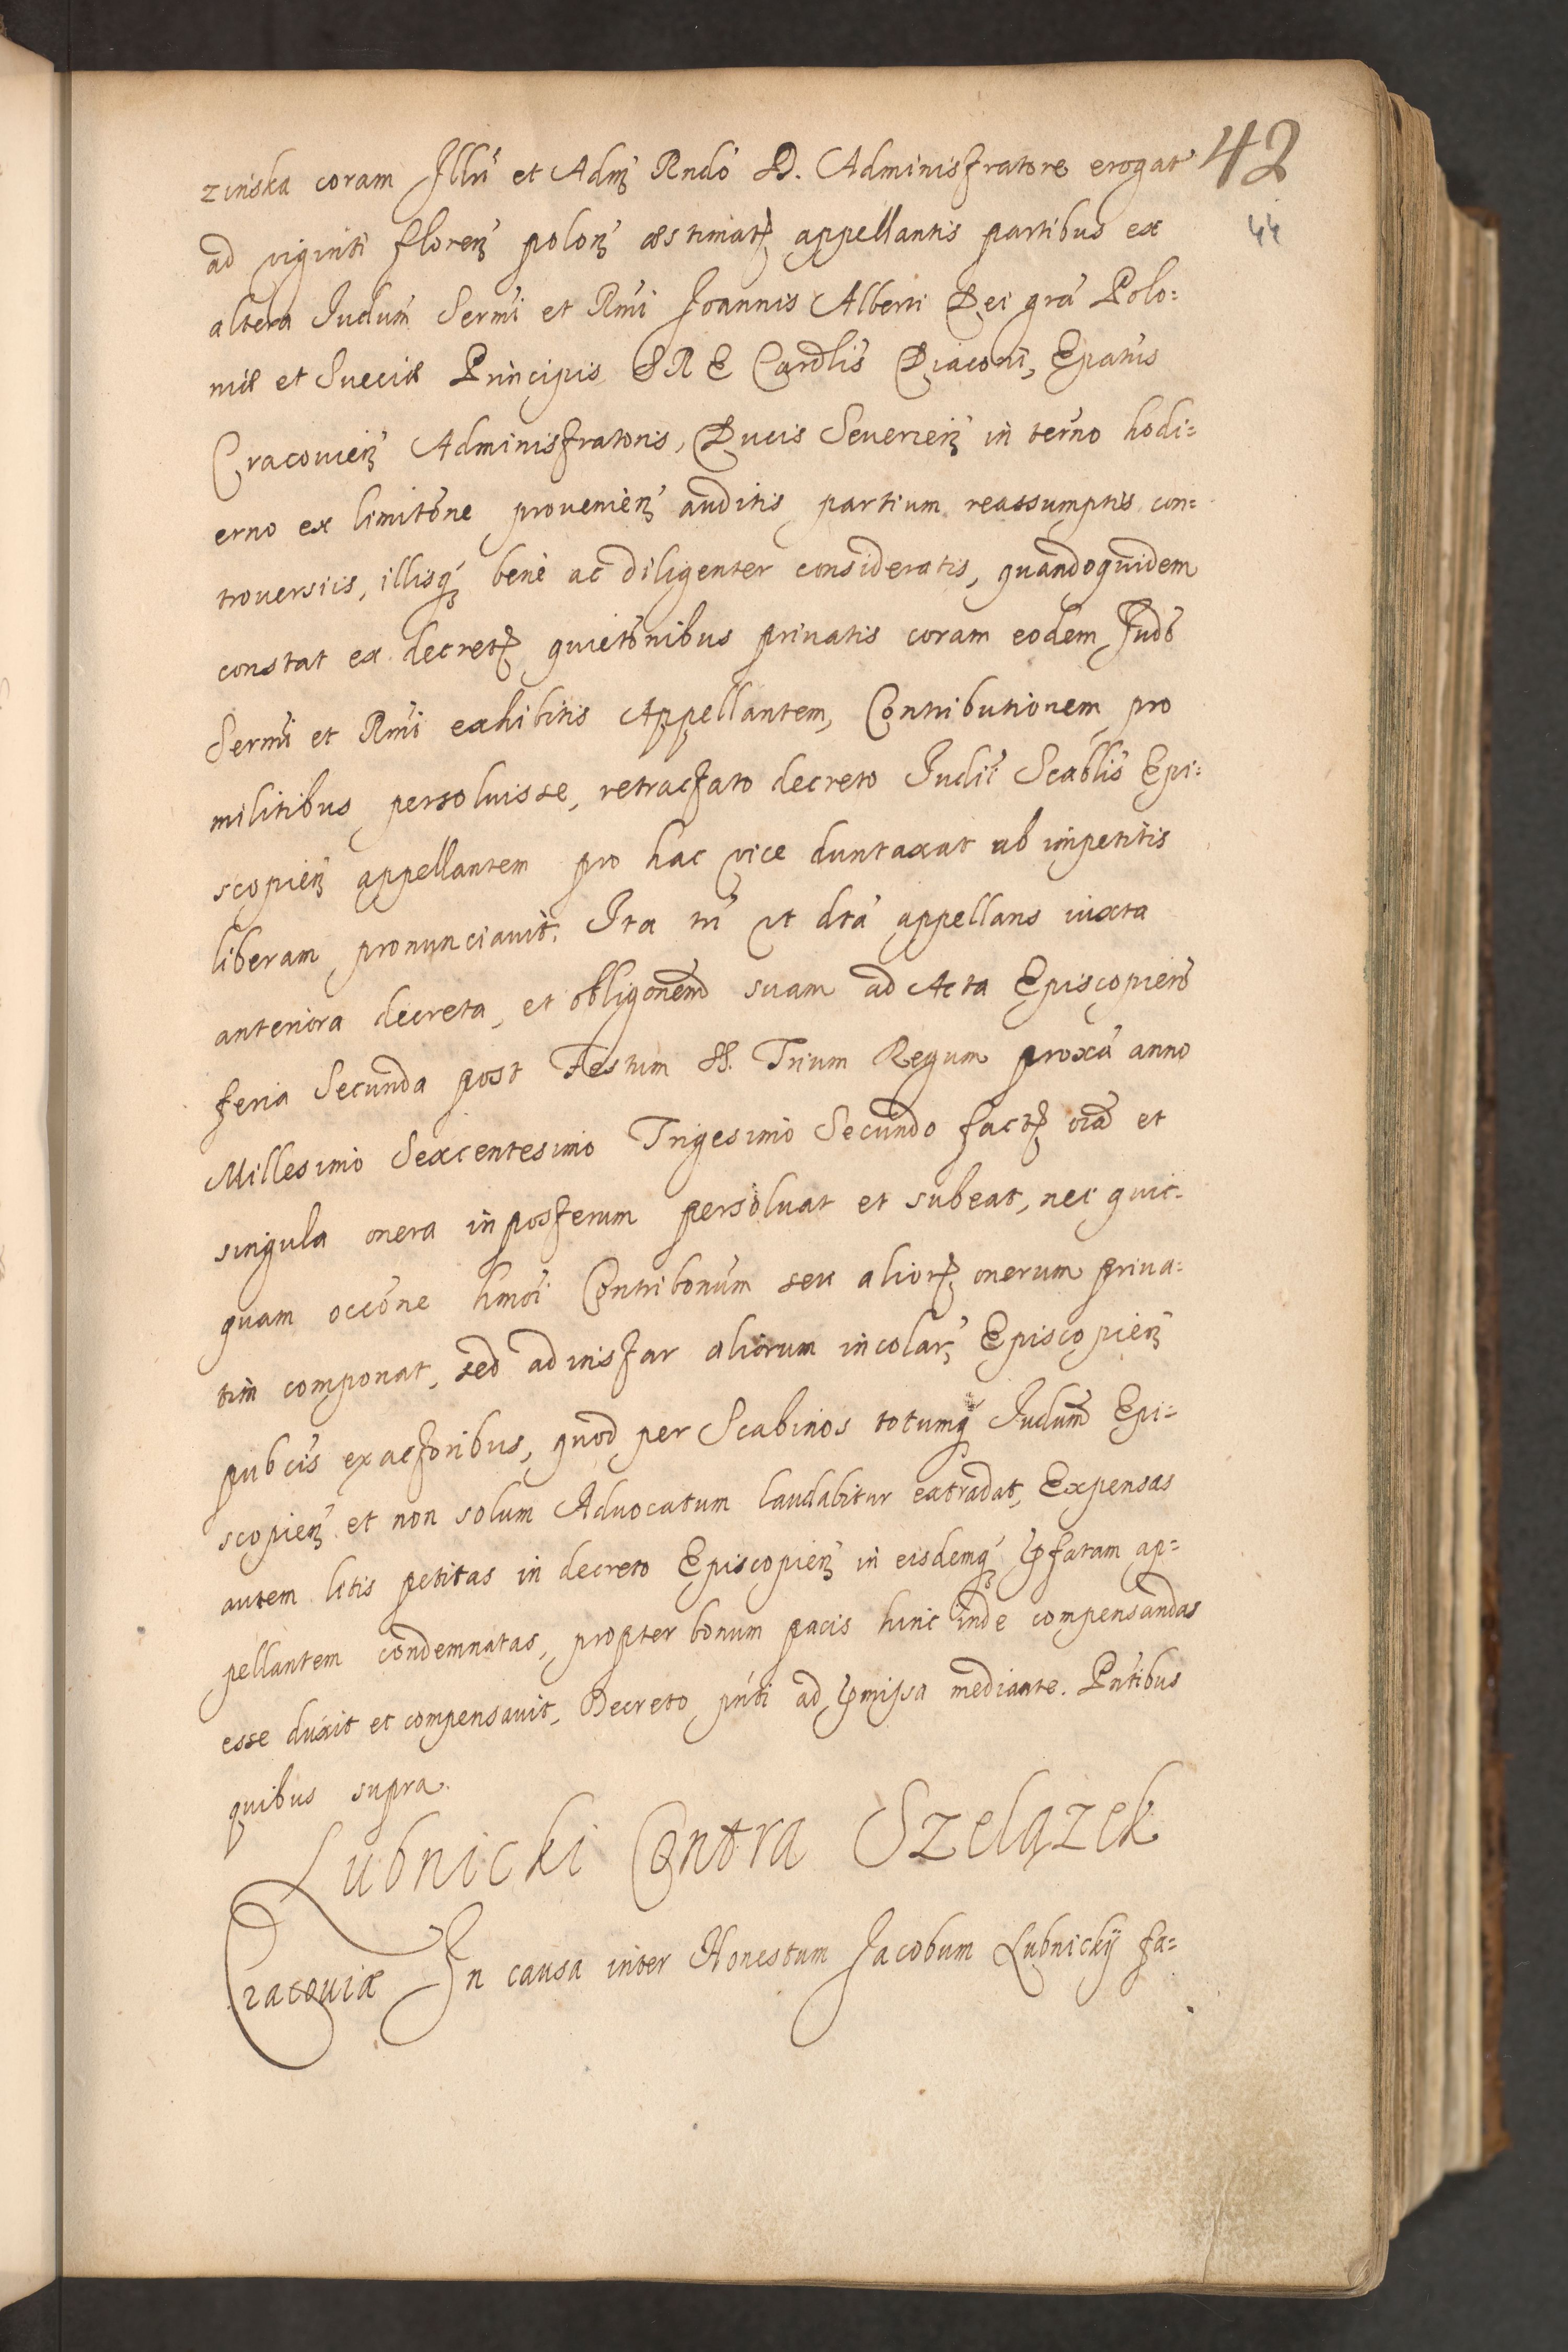 zinska coram Illri et Adm Rndo D. Administratore erogat 42
ad viginti floren polon æstimat appellantis partibus ex 44
altera Iudum Sermi et Rmi Joannis Alberti Dei gra Polo=
niæ et Sueciæ Principis S R E Cardlis Diaconi, Epatus
Cracovien Administratoris, Ducis Severien in termo hodi=
erno ex limitone provenien auditis partium reassumptis con=
troversiis, illisq bene ac diligenter consideratis, quandoquidem
constat ex decret quietonibus privatis coram eodem Judo
Sermi et Rmi exhibitis Appellantem, Contributionem pro
militibus persoluisse, retractato decreto Judii Scablis Epi=
scopien appellantem pro hac vice duntaxat ab impetitis
liberam pronunciavit. Ita tn ut dta appellans iuxta
anteriora decreta, et obligonem suam ad Acta Episcopien
feria Secunda post Festum SS. Trium Regum proxa anno
Millesimo Sexcentesimo Trigesimo Secundo fact oia et
singula onera in posterum persoluat et subeat, nec quic=
quam occone hmoi Contribonum seu alior onerum priva=
tim componat, sed ad instar aliorum incolar Episcopien
pubcis exactoribus, quod per Scabinos totumq Iudum Epi=
scopien et non solum Advocatum laudabitur extradat, Expensas
autem litis petitas in decreto Episcopien in eisdemq pfatam ap=
pellantem condemnatas, propter bonum pacis hinc inde compensandas
esse duxit et compensavit, Decreto pnti ad pmissa mediante. Pntibus
quibus supra.
Lubnicki Contra Szelązek
Cracoviæ In causa inter Honestum Jacobum Lubnickÿ fa=